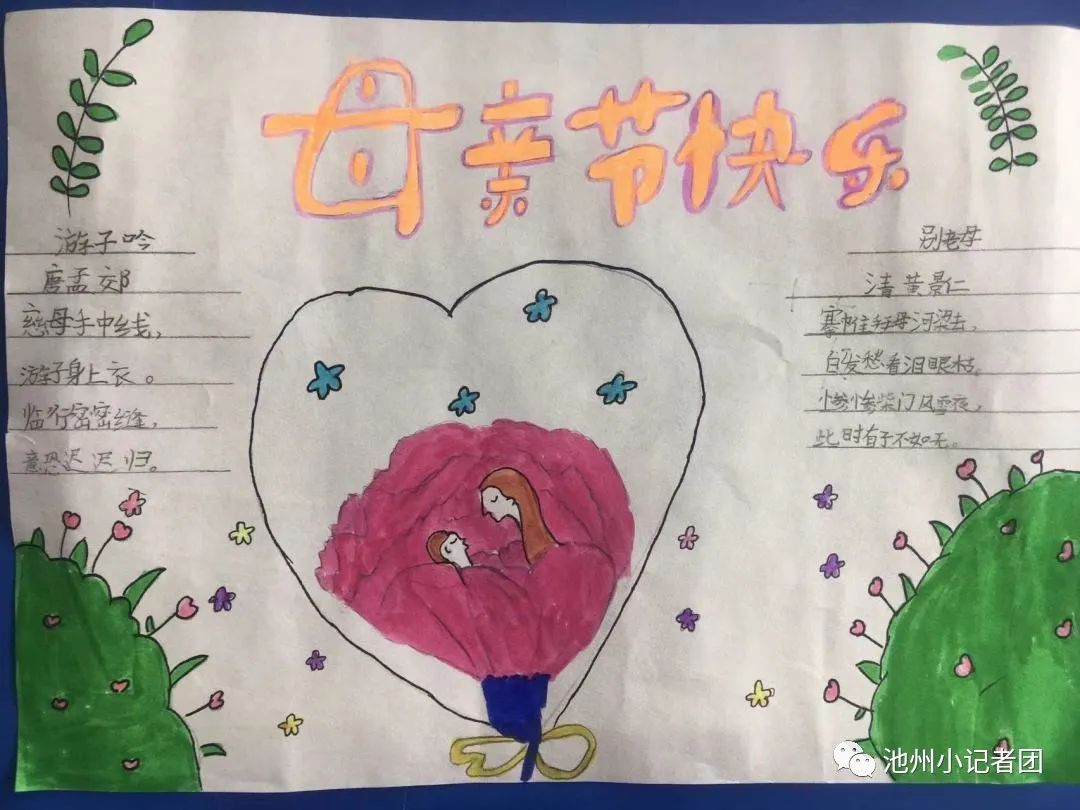 母亲节快乐
游子吟
唐孟郊
慈母手中线，
游子身上衣。
临行密密缝，
意恐迟迟归。
别老母
清黄景仁
搴帏拜母河梁去，
白发愁看泪眼枯。
惨惨柴门风雪夜，
此时有子不如无。
池州小记者团